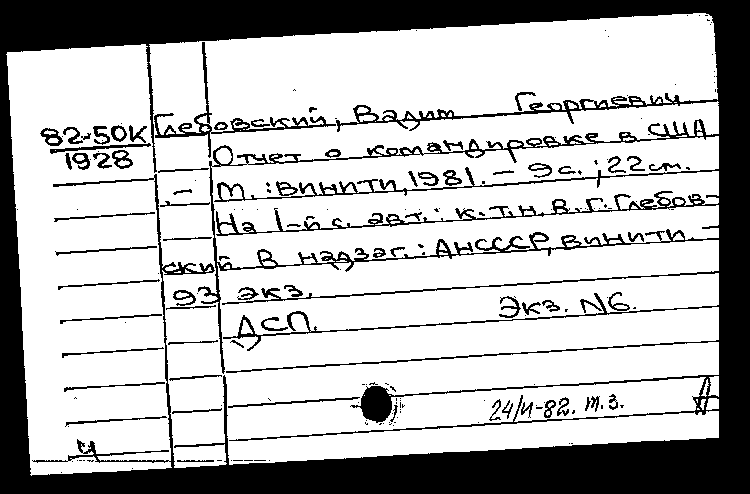 82-50К Глебовский, Вадим Георгиевич
1928 Отчет о командировке в США
.- М.: ВИНИТИ, 1981. - 9 с.; 22 см.
На 1-й с. авт.: к.т.н. В.Г. Глебов-
ский В надзаг.: АНСССР, ВИНИТИ. -
93 экз.
ДСП. Экз. N6.
24/II-82. т.з.
ч